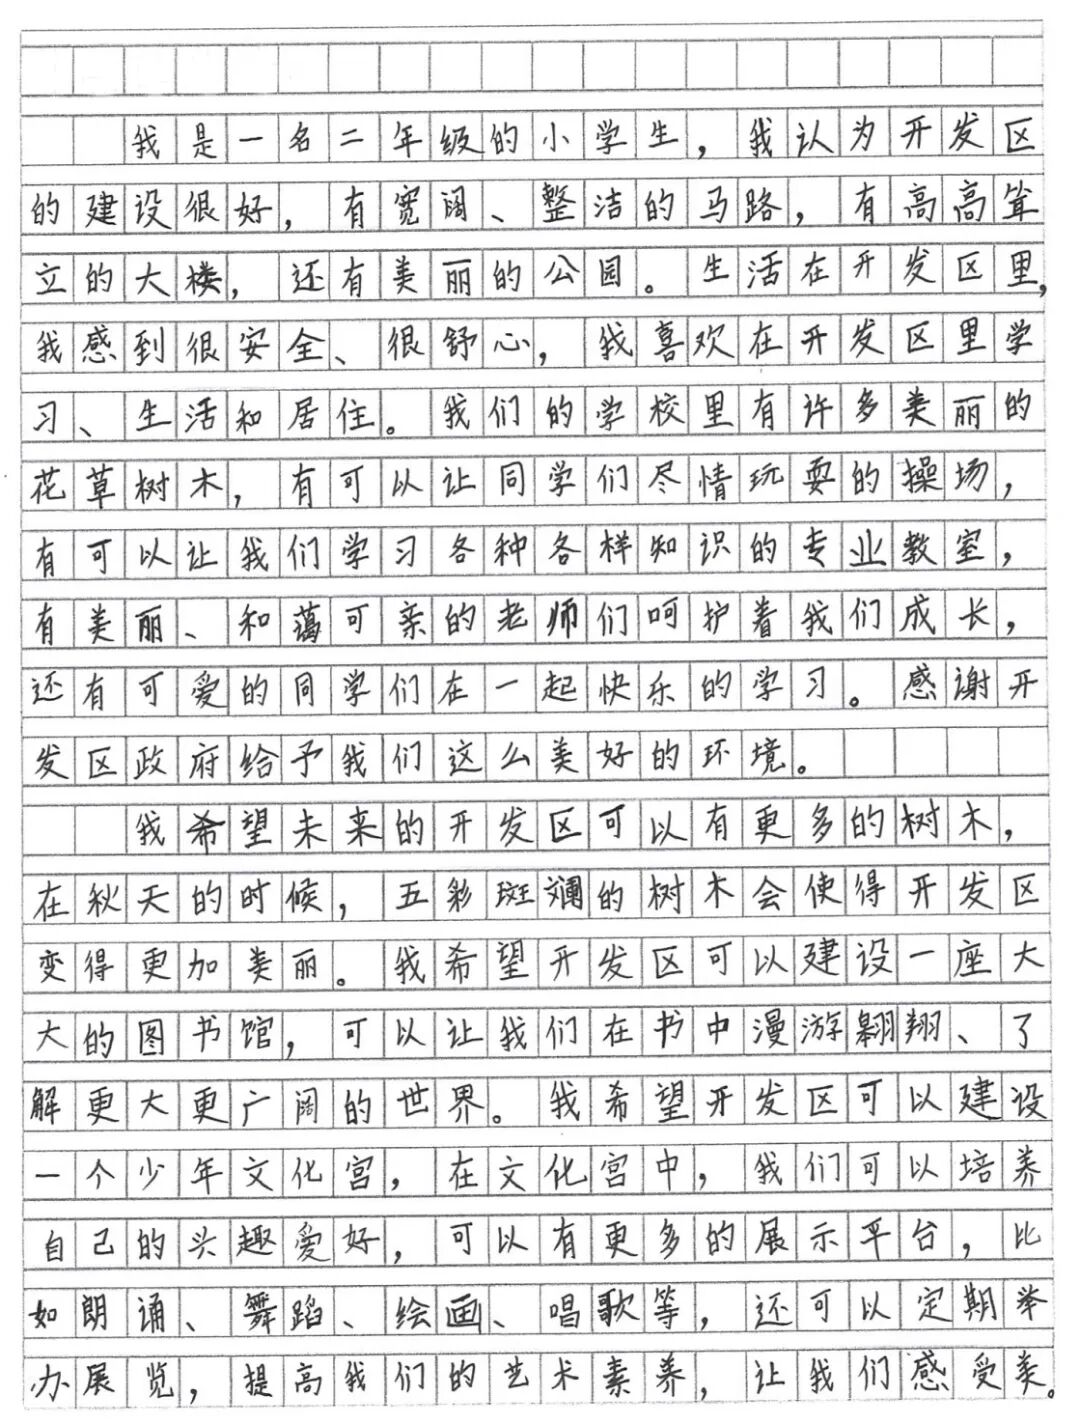 我是一名二年级的小学生，我认为开发区
的建设很好，有宽阔、整洁的马路，有高高耸
立的大楼，还有美丽的公园。生活在开发区里，
我感到很安全、很舒心，我喜欢在开发区里学
习、生活和居住。我们的学校里有许多美丽的
花草树木，有可以让同学们尽情玩耍的操场，
有可以让我们学习各种各样知识的专业教室，
有美丽、和蔼可亲的老师们呵护着我们成长，
还有可爱的同学们在一起快乐的学习。感谢开
发区政府给予我们这么美好的环境。
我希望未来的开发区可以有更多的树木，
在秋天的时候，五彩斑斓的树木会使得开发区
变得更加美丽。我希望开发区可以建设一座大
大的图书馆，可以让我们在书中漫游翱翔、了
解更大更广阔的世界。我希望开发区可以建设
一个少年文化宫，在文化宫中，我们可以培养
自己的头趣爱好，可以有更多的展示平台，比
如朗诵、舞蹈、绘画、唱歌等，还可以定期举
办展览，提高我们的艺术素养，让我们感受美。